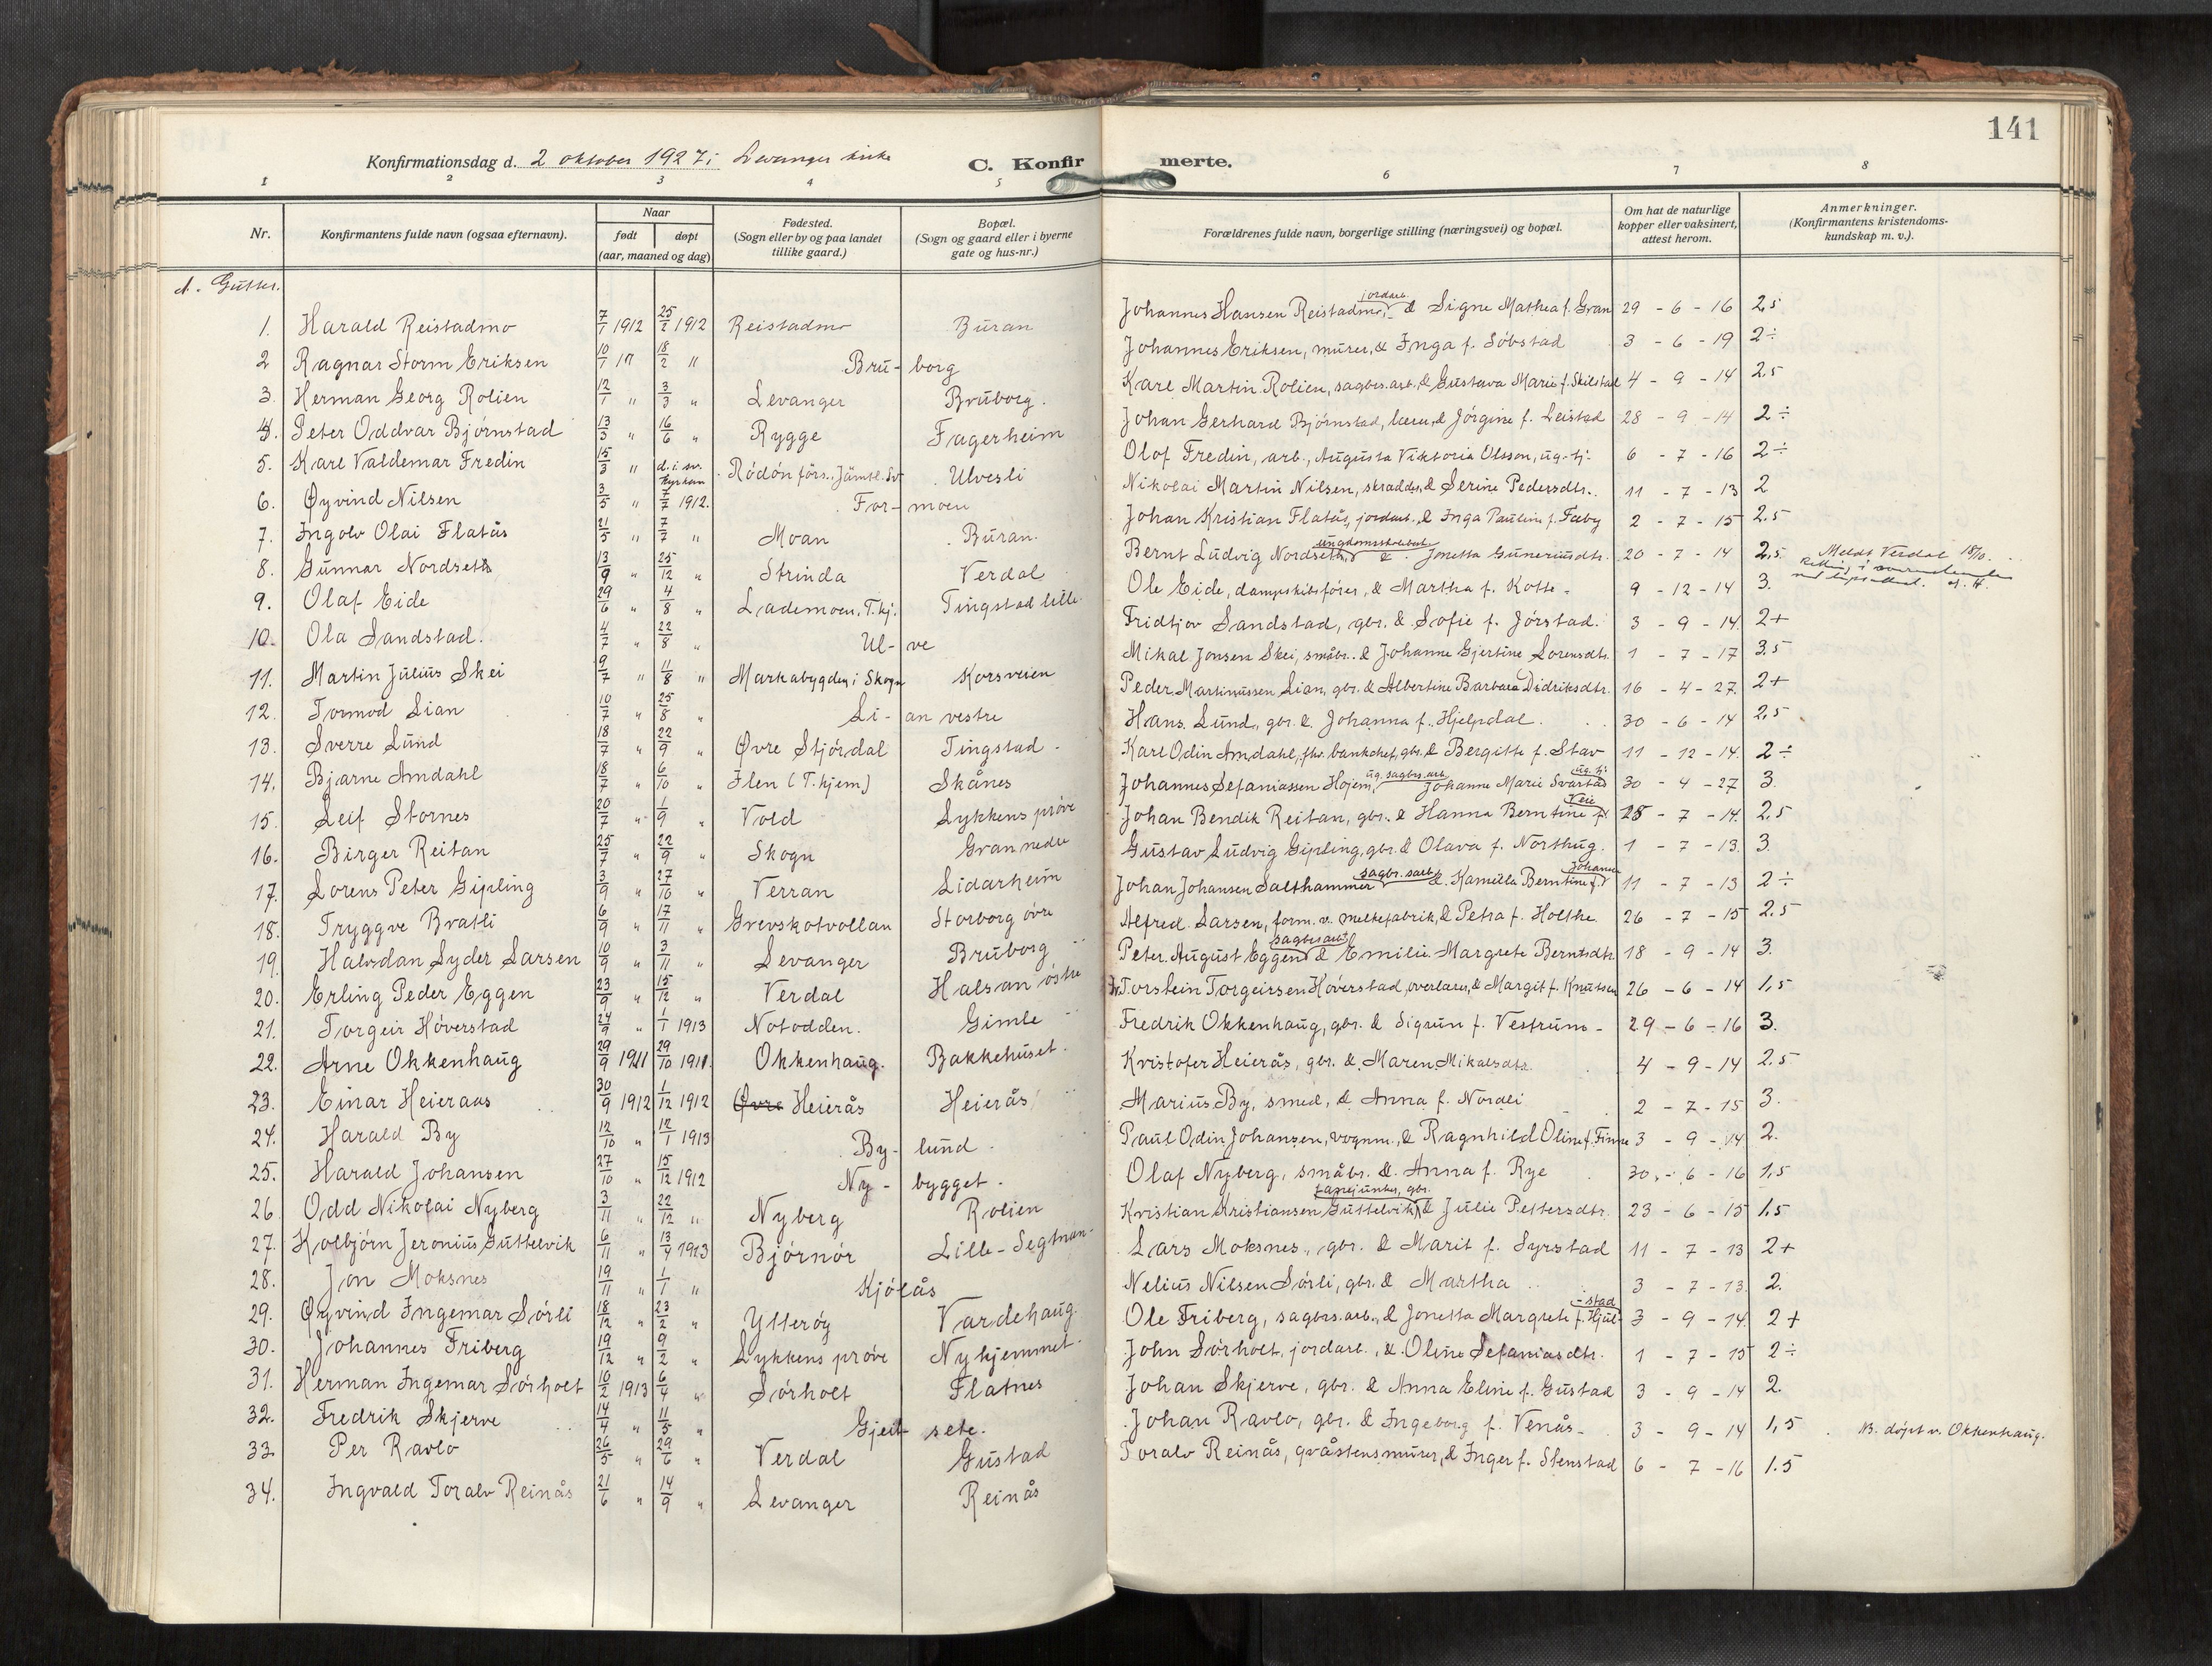 141
Konfirmationsdag d. 2 oktober 1927 i Levanger kirke C. Konfirmerte.
1 2 3 4 5 6 7 8
Nr. Konfirmantens fulde navn (ogsaa efternavn). Naar født døpt (aar, maaned og dag) Fødested. (Sogn eller by og paa landet tillike gaard.) Bopæl. (Sogn og gaard eller i byerne gate og hus-nr.) Forældrenes fulde navn, borgerlige stilling (næringsvei) og bopæl. Om hat de naturlige kopper eller vaksinert, attest herom. Anmerkninger. (Konfirmantens kristendomskundskap m. v.).
A. Gutter.
1. Harald Reistadmo 7/1 1912 25/2 1912 Reistadmo Buran Johannes Hansen Reistadmo, jordarb. & Signe Mathea f. Gran 29-6-16 2,5
2 Ragnar Storm Eriksen 10/1 " 18/2 " Bru-borg Johannes Eriksen, murer, & Inga f. Söbstad 3-6-19 2÷
3. Herman Georg Rolien 12/1 " 3/3 " Levanger Bruborg. Karl Martin Rolien, sagbrs.arb. & Gustava Marie f. Skilstad 4-9-14 2,5
4. Peter Oddvar Björnstad 13/3 " 16/6 " Rygge Fagerheim Johan Gerhard Björnstad, lærer, & Jörgine f. Leistad 28-9-14 2÷
5. Karl Valdemar Fredin 15/3 " d. i sv. kyrkan Rödön förs., Jämtl. Sv. Ulvesli Olof Fredin, arb., Augusta Viktoria Olsson, ug. tj. 6-7-16 2÷
6. Øyvind Nilsen 3/5 " 7/7 1912. For-moen Nikolai Martin Nilsen, skrædder, & Serine Pedersdtr. 11-7-13 2
7. Ingolv Olai Flatås 21/5 " 7/7 " Moan Buran. Johan Kristian Flatås, jordarb., & Inga Pauline f. Faby 2-7-15 2,5
8. Gunnar Nordseth 13/9 " 25/12 " Strinda Verdal Bernt Ludvig Nordseth, & Jonetta Guneriusdtr. 20-7-14 2,5 Meldt Verdal 18/10.
9. Olaf Eide 29/6 " 4/8 " Lademoen, T.hj. Tingstad lille Ole Eide, dampskibsförer, & Martha f. Kotte 9-12-14 3.
10. Ola Sandstad. 4/7 " 22/8 " Ul-ve Fridtjov Sandstad, gbr. & Sofie f. Jörstad. 3-9-14 2+
11. Martin Julius Skei 9/7 " 11/8 " Markabygden i Skogn Korsveien Mikal Jonsen Skei, småbr. & Johanne Gjertine Lorensdtr. 1-7-17 3,5
12. Tormod Lian 10/7 " 25/8 " Li-an vestre Peder Martinussen Lian, gbr. & Albertine Barbara Didriksdtr. 16-4-27. 2+
13. Sverre Lund 18/7 " 22/9 " Øvre Stjördal Tingstad Hans Lund, gbr. & Johanna f. Hjelpdal. 30-6-14 2,5
14. Bjarne Amdahl 18/7 " 6/10 " Ilen (T.hjem) Skånes Karl Odin Amdahl, fhv. bankchef, gbr. & Bergitte f. Stav 11-12-14. 2÷
15. Leif Stornes 20/7 " 1/9 " Vold Lykkens pröve Johannes Sefaniassen Hojem, ug. sagbrs.arb. Johanne Marie Svartås ug. tj. 30-4-27 3.
16. Birger Reitan 25/7 " 22/9 " Skogn Gran nedre Johan Bendik Reitan, gbr. & Hanna Berntine f. Veie 25-7-14. 2,5
17. Lorens Peter Gipling 3/9 " 27/10 " Verran Lidarheim Gustav Ludvig Gipling, gbr. & Olava f. Northug. 1-7-13. 3.
18. Tryggve Bratli 6/9 " 17/11 " Grevskotvollan Storborg övre Johan Johansen Salthammer & Kamilla Berntine f. 11-7-13 2÷
19. Halvdan Lyder Larsen 10/9 " 3/11 " Levanger Bruborg Alfred Larsen, form. v. melkefabrik, & Petra f. Holthe 26-7-15 2,5
20. Erling Peder Eggen 23/9 " 15/12 " Verdal Halsan östre Peter August Eggen & Emilie Margrete Berntsdtr. 18-9-14 3.
21. Torgeir Höverstad 24/9 " 1/1 1913 Notodden. Gimle Torstein Torgeirsen Höverstad, overlærer, & Margit f. Knutsen 26-6-14 1,5
22. Arne Okkenhaug 29/9 1911 29/10 1911. Okkenhaug. Bakkehuset. Fredrik Okkenhaug, gbr. & Sigrun f. Vestrum 29-6-16 3.
23. Einar Heieraas 30/9 1912 1/12 1912 Øvre Heierås Heierås Kristofer Heierås, gbr. & Maren Mikalsdtr. 4-9-14 2,5
24. Harald By 12/10 " 12/1 1913 By-lund Marius By, smed, & Anna f. Nordli 2-7-15 3.
25. Harald Johansen 27/10 " 15/12 1912 Ny-bygget. Paul Odin Johansen, vognm., & Ragnhild Oline f. Finne 3-9-14 2.
26. Odd Nikolai Nyberg 3/11 " 22/12 " Nyberg Rolien Olaf Nyberg, småbr. & Anna f. Rye 30-6-16 1,5
27. Kolbjörn Jeronius Guttelvik 6/11 " 13/4 1913 Björnör Lille-Segtnan Kristian Kristiansen Guttelvik, & Julie Pettersdtr. 23-6-15 1,5
28. Jon Moksnes 19/11 " 1/1 " Kjölås Lars Moksnes, gbr. & Marit f. Syrstad 11-7-13 2+
29. Øyvind Ingemar Sörli 18/12 " 23/2 " Ytteröy Vardehaug. Nelius Nilsen Sörli, gbr. & Martha 3-7-13. 2.
30. Johannes Friberg 19/12 " 9/2 " Lykkens pröve Nyhjemmet. Ole Friberg, sagbrs.arb., & Jonetta Margrete f. Hjulstad 3-9-14. 2+
31. Herman Ingemar Sörholt 10/2 1913 6/4 " Sörholt Flatnes John Sörholt, jordarb., & Oline Sefaniasdtr. 1-7-15 2÷
32. Fredrik Skjerve 14/4 " 11/5 " Gjeit-sete. Johan Skjerve, gbr. & Anna Eline f. Gustad 3-9-14 2.
33. Per Ravlo 26/5 " 29/6 " Verdal Gustad Johan Ravlo, gbr. & Ingeborg f. Venås 3-9-14 1,5 döpt v. Okkenhaug.
34. Ingvald Toralv Reinås 21/6 " 14/9 " Levanger Reinås Toralv Reinås, gråstensmurer, & Inger f. Stenstad 6-7-16 1.5